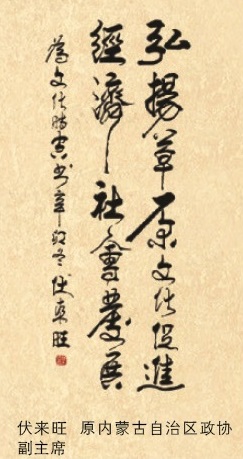 弘揚草原文化促進
經濟社會發展
為文化時空書辛卯冬伏來旺
伏来旺 原内蒙古自治区政协
副主席